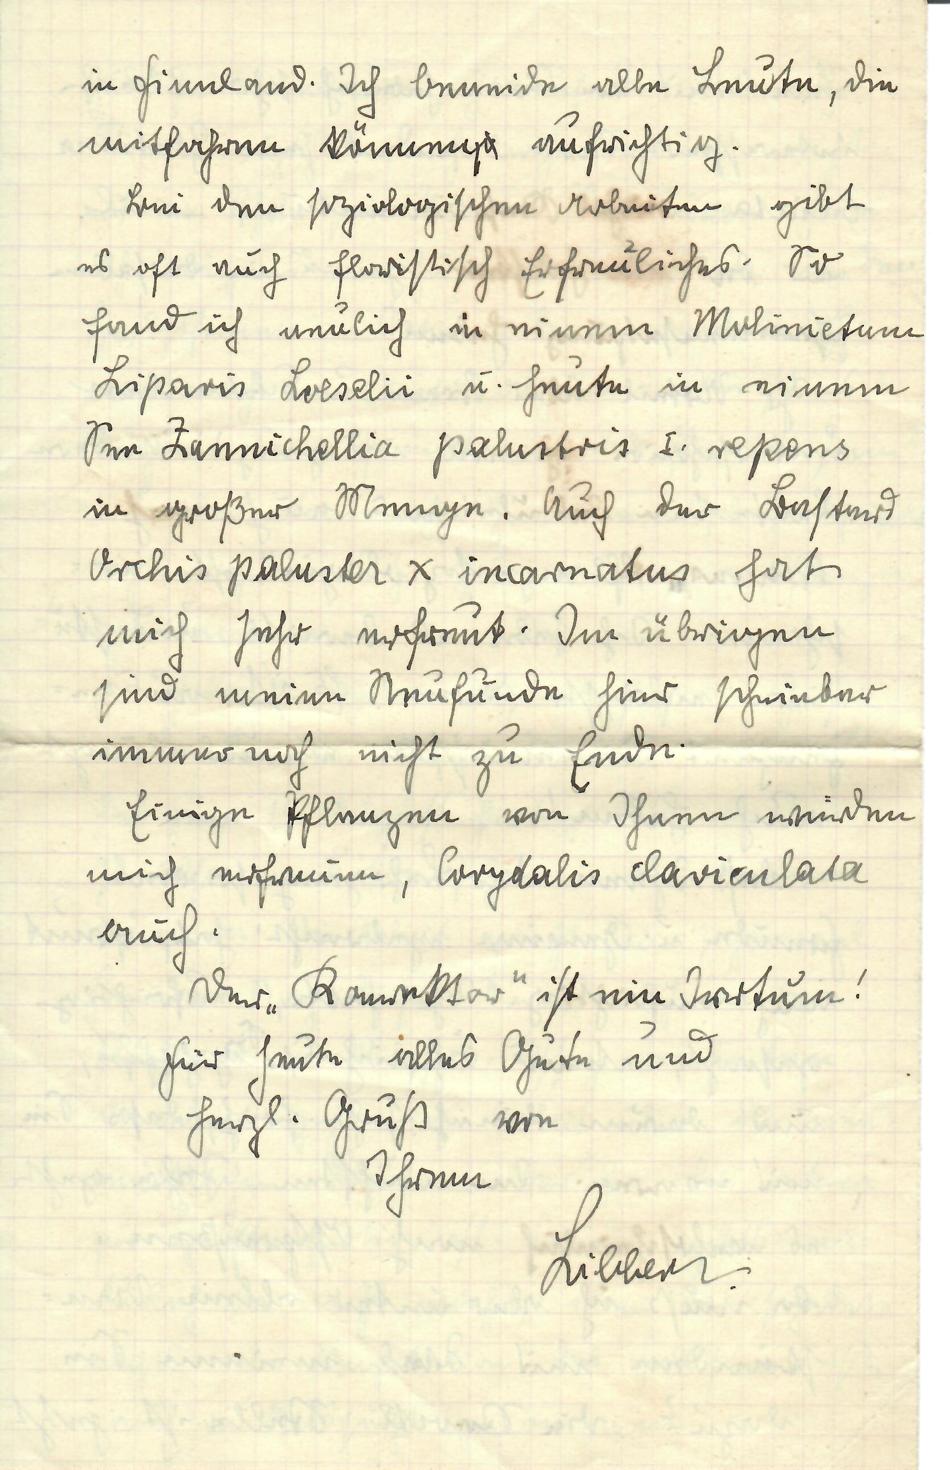 in Finnland. Ich beneide alle Leute, die
mitfahren können aufrichtig.
Bei den soziologischen Arbeiten gibt
es oft auch floristisch Erfreuliches. So
fand ich neulich in einem Molinietum
Liparis Loeselii u. heute in einem
See Zannichellia palustris I. repens
in großer Menge. Auch der Bastard
Orchis paluster x incarnatus hat
mich sehr erfreut. Im übrigen
sind meine Neufunde hier scheinbar
immer noch nicht zu Ende.
Einige Pflanzen von Ihnen würden
mich erfreuen, Corydalis claviculata
auch.
Der „Konrektor" ist ein Irrtum!
Für heute alles Gute und
herzl. Gruß von
Ihrem
Libbert.